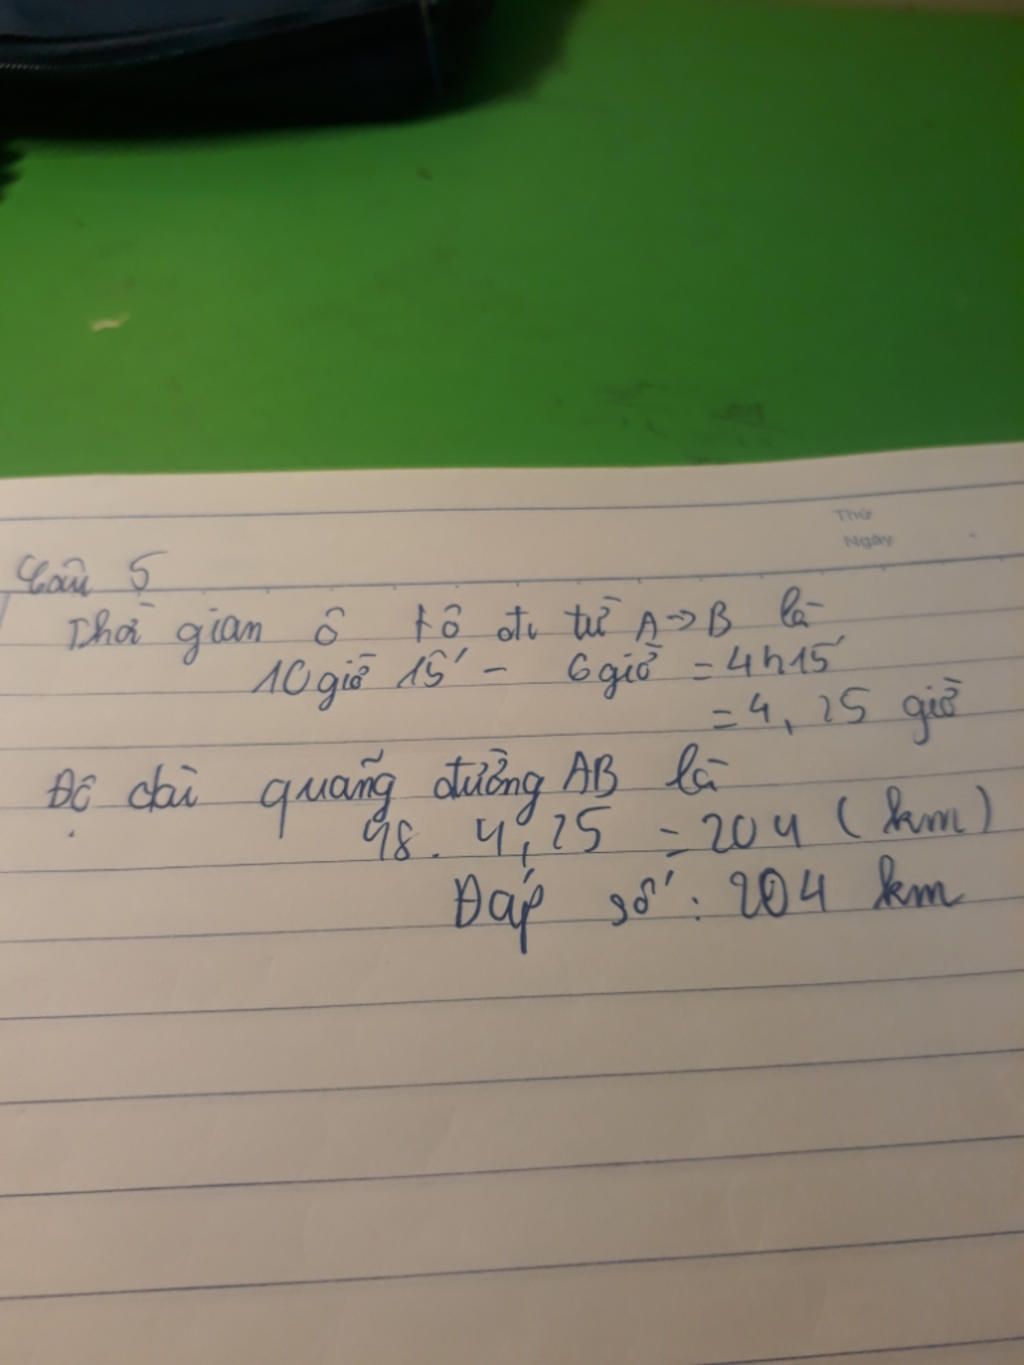 Thứ
Ngày
Câu 5
Thời gian ô tô đi từ A->B là
10 giờ 15' - 6 giờ = 4h15'
= 4,25 giờ
Độ dài quãng đường AB là
48. 4,25 = 204 (km)
Đáp số: 204 km